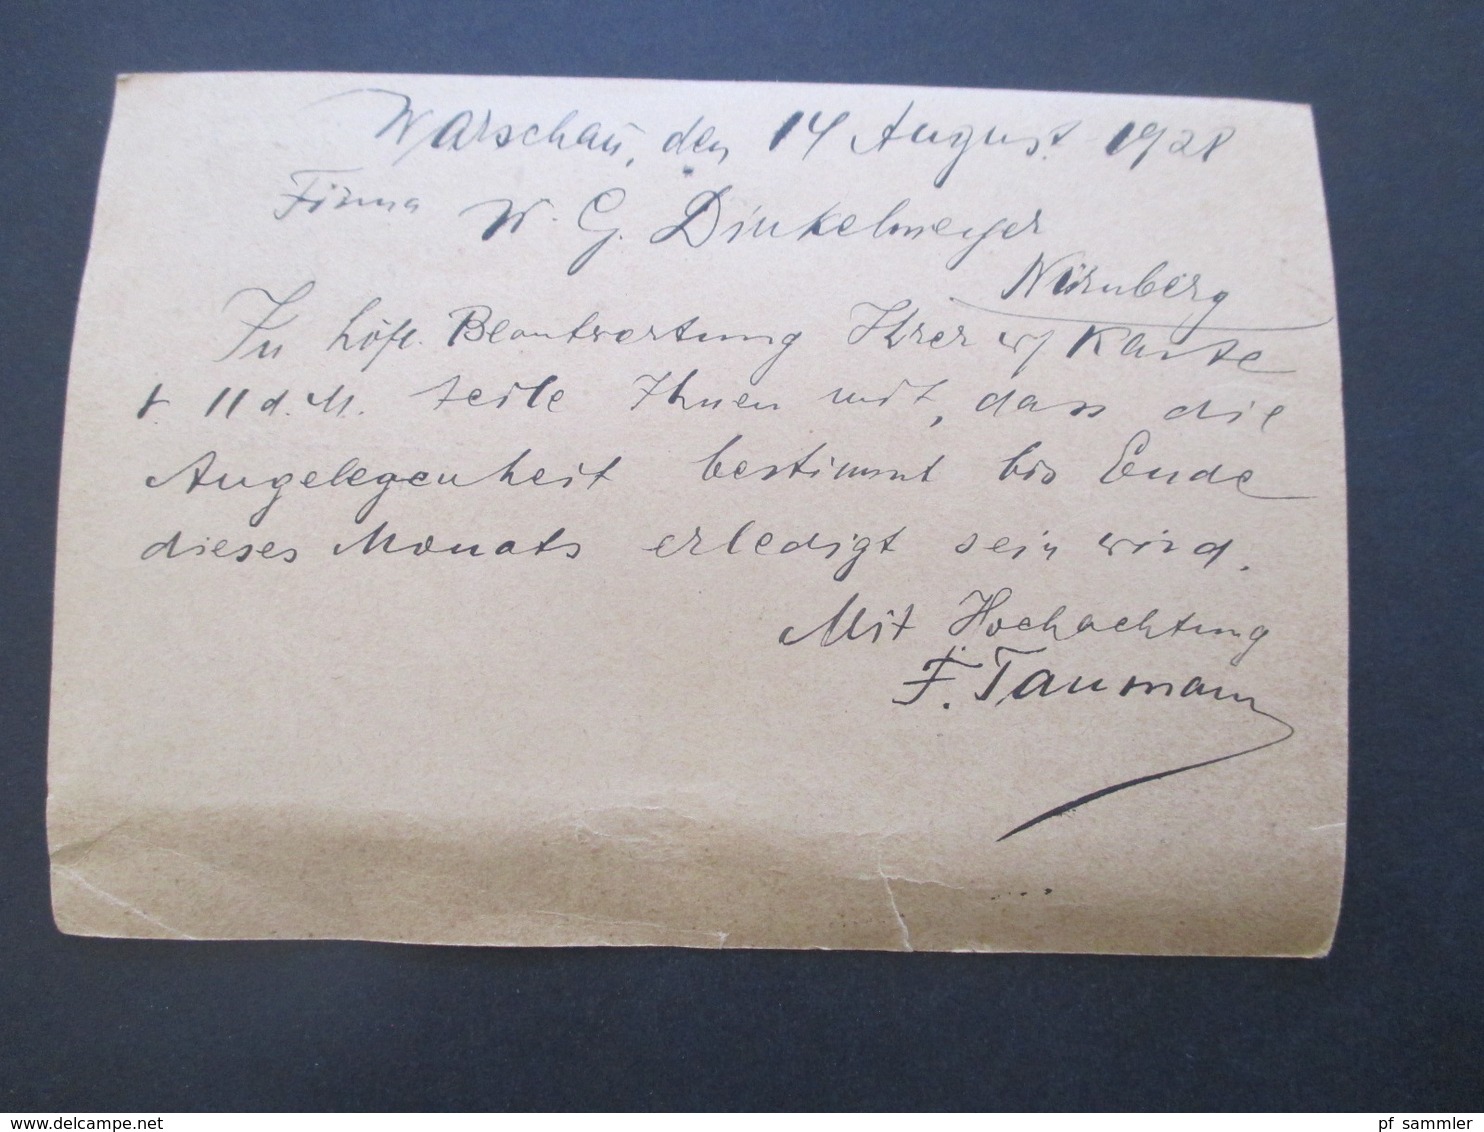 Warschau, den 14 August 1928
Firma W. G. Dinkelmeyer
Nürnberg
In höfl. Beantwortung Ihrer w/ Karte
v. 11 d. M. teile Ihnen mit, dass die
Angelegenheit bestimmt bis Ende
dieses Monats erledigt sein wird.
Mit Hochachtung
F. Taumann
www.delcampe.net
pf_sammler